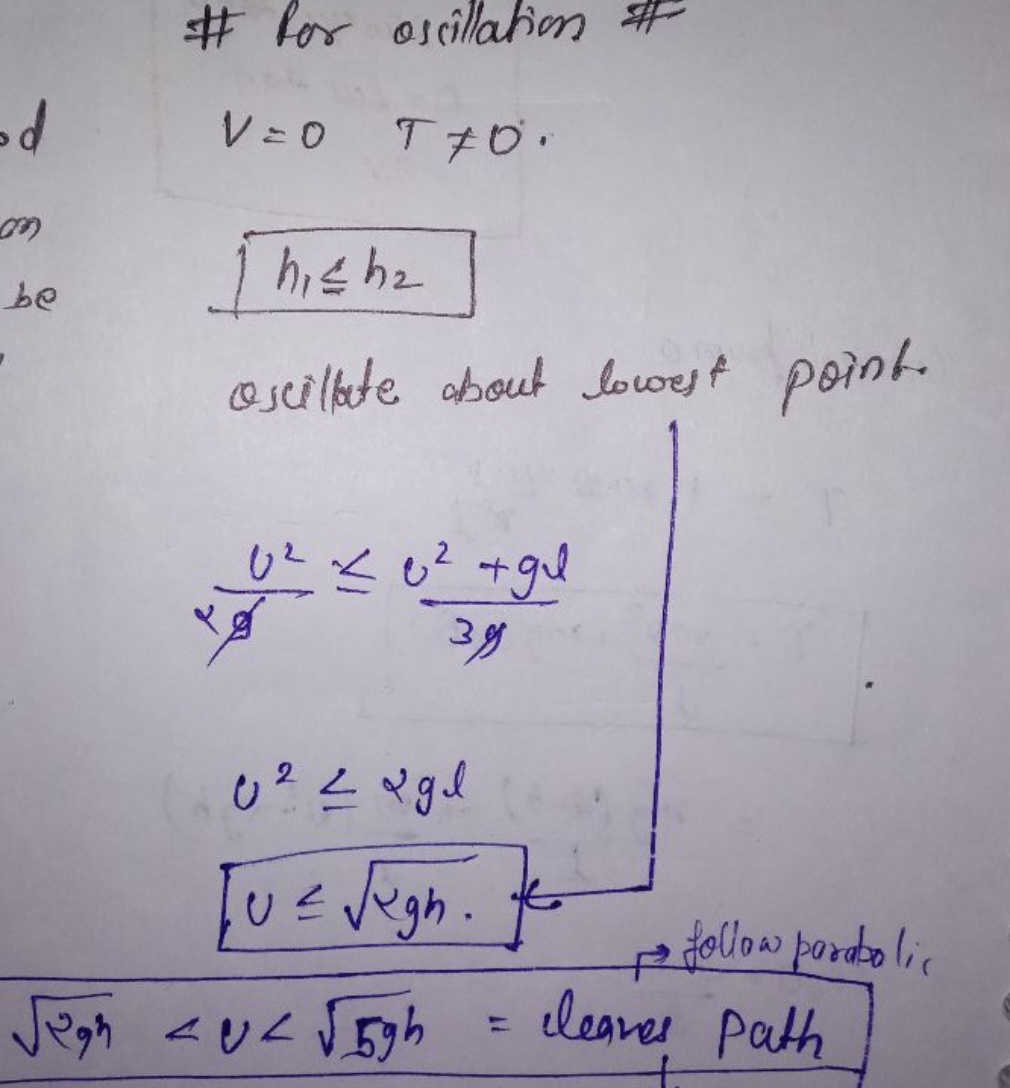 # for oscillation #
od V = 0 T ≠ 0.
on
h₁ ≤ h₂
be
oscillate about lowest point.
u²/2g ≤ u² + gl/3g
u² ≤ 2gl
u ≤ √2gh.
→ follow parabolic
√2gh < u < √5gh = leaves path